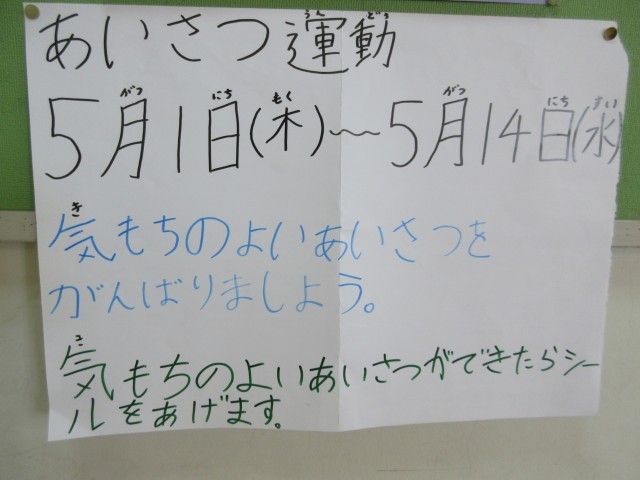 あいさつ運動
5月1日(木)〜5月14日(水)
気もちのよいあいさつを
がんばりましょう。
気もちのよいあいさつができたらシー
ルをあげます。